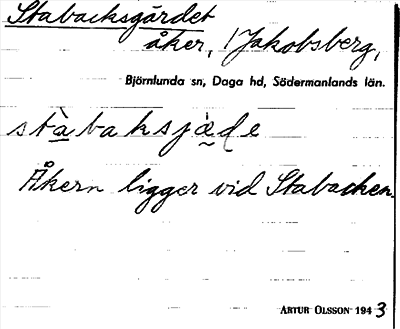 Stabacksgärdet
åker, / Jakobsberg,
Björnlunda sn, Daga hd, Södermanlands län.
stàbaksjǟḍe
Åkern ligger vid Stabacken.
ARTUR OLSSON 1943